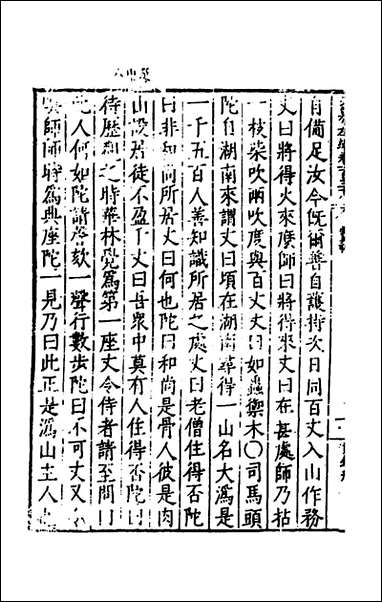 自備足汝今既爾善自護持次日同百丈入山作務
丈曰將得火來麼師曰將得來丈曰在甚處師乃拈
一枝柴吹兩吹度與百丈丈曰如蟲禦木〇司馬頭
陀自湖南來謂丈曰頃在湖南尋得一山名大溈是
一千五百人善知識所居之處丈曰老僧住得否陀
曰非和尚所居丈曰何也陀曰和尚是骨人彼是肉
山設居徒不盈千丈曰吾眾中莫有人住得否陀曰
待歷觀之時華林覺為第一座丈令侍者請至問曰
此人何如陀請謦欬一聲行數步陀曰不可丈又令
喚師師時為典座陀一見乃曰此正是溈山主人